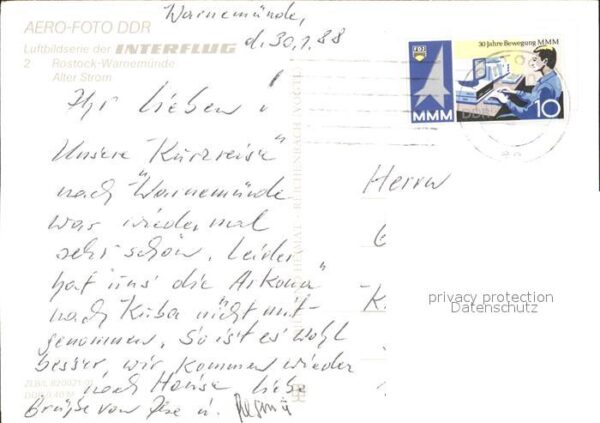 Warnemünde,
d. 30.1.88
AERO-FOTO DDR
Luftbildserie der INTERFLUG
2 Rostock-Warnemünde
Alter Strom
Ihr Lieben!
Unsere "Kurzreise"
nach "Warnemünde
war wieder mal
sehr schön. Leider
hat uns die "Arkona"
nach Kuba nicht mit-
genommen. So ist es wohl
besser, wir kommen wieder
nach Hause. Liebe
Grüße von Ilse u.
30 Jahre Bewegung MMM
FDJ
MMM
DDR
10
Herrn
K
privacy protection
Datenschutz